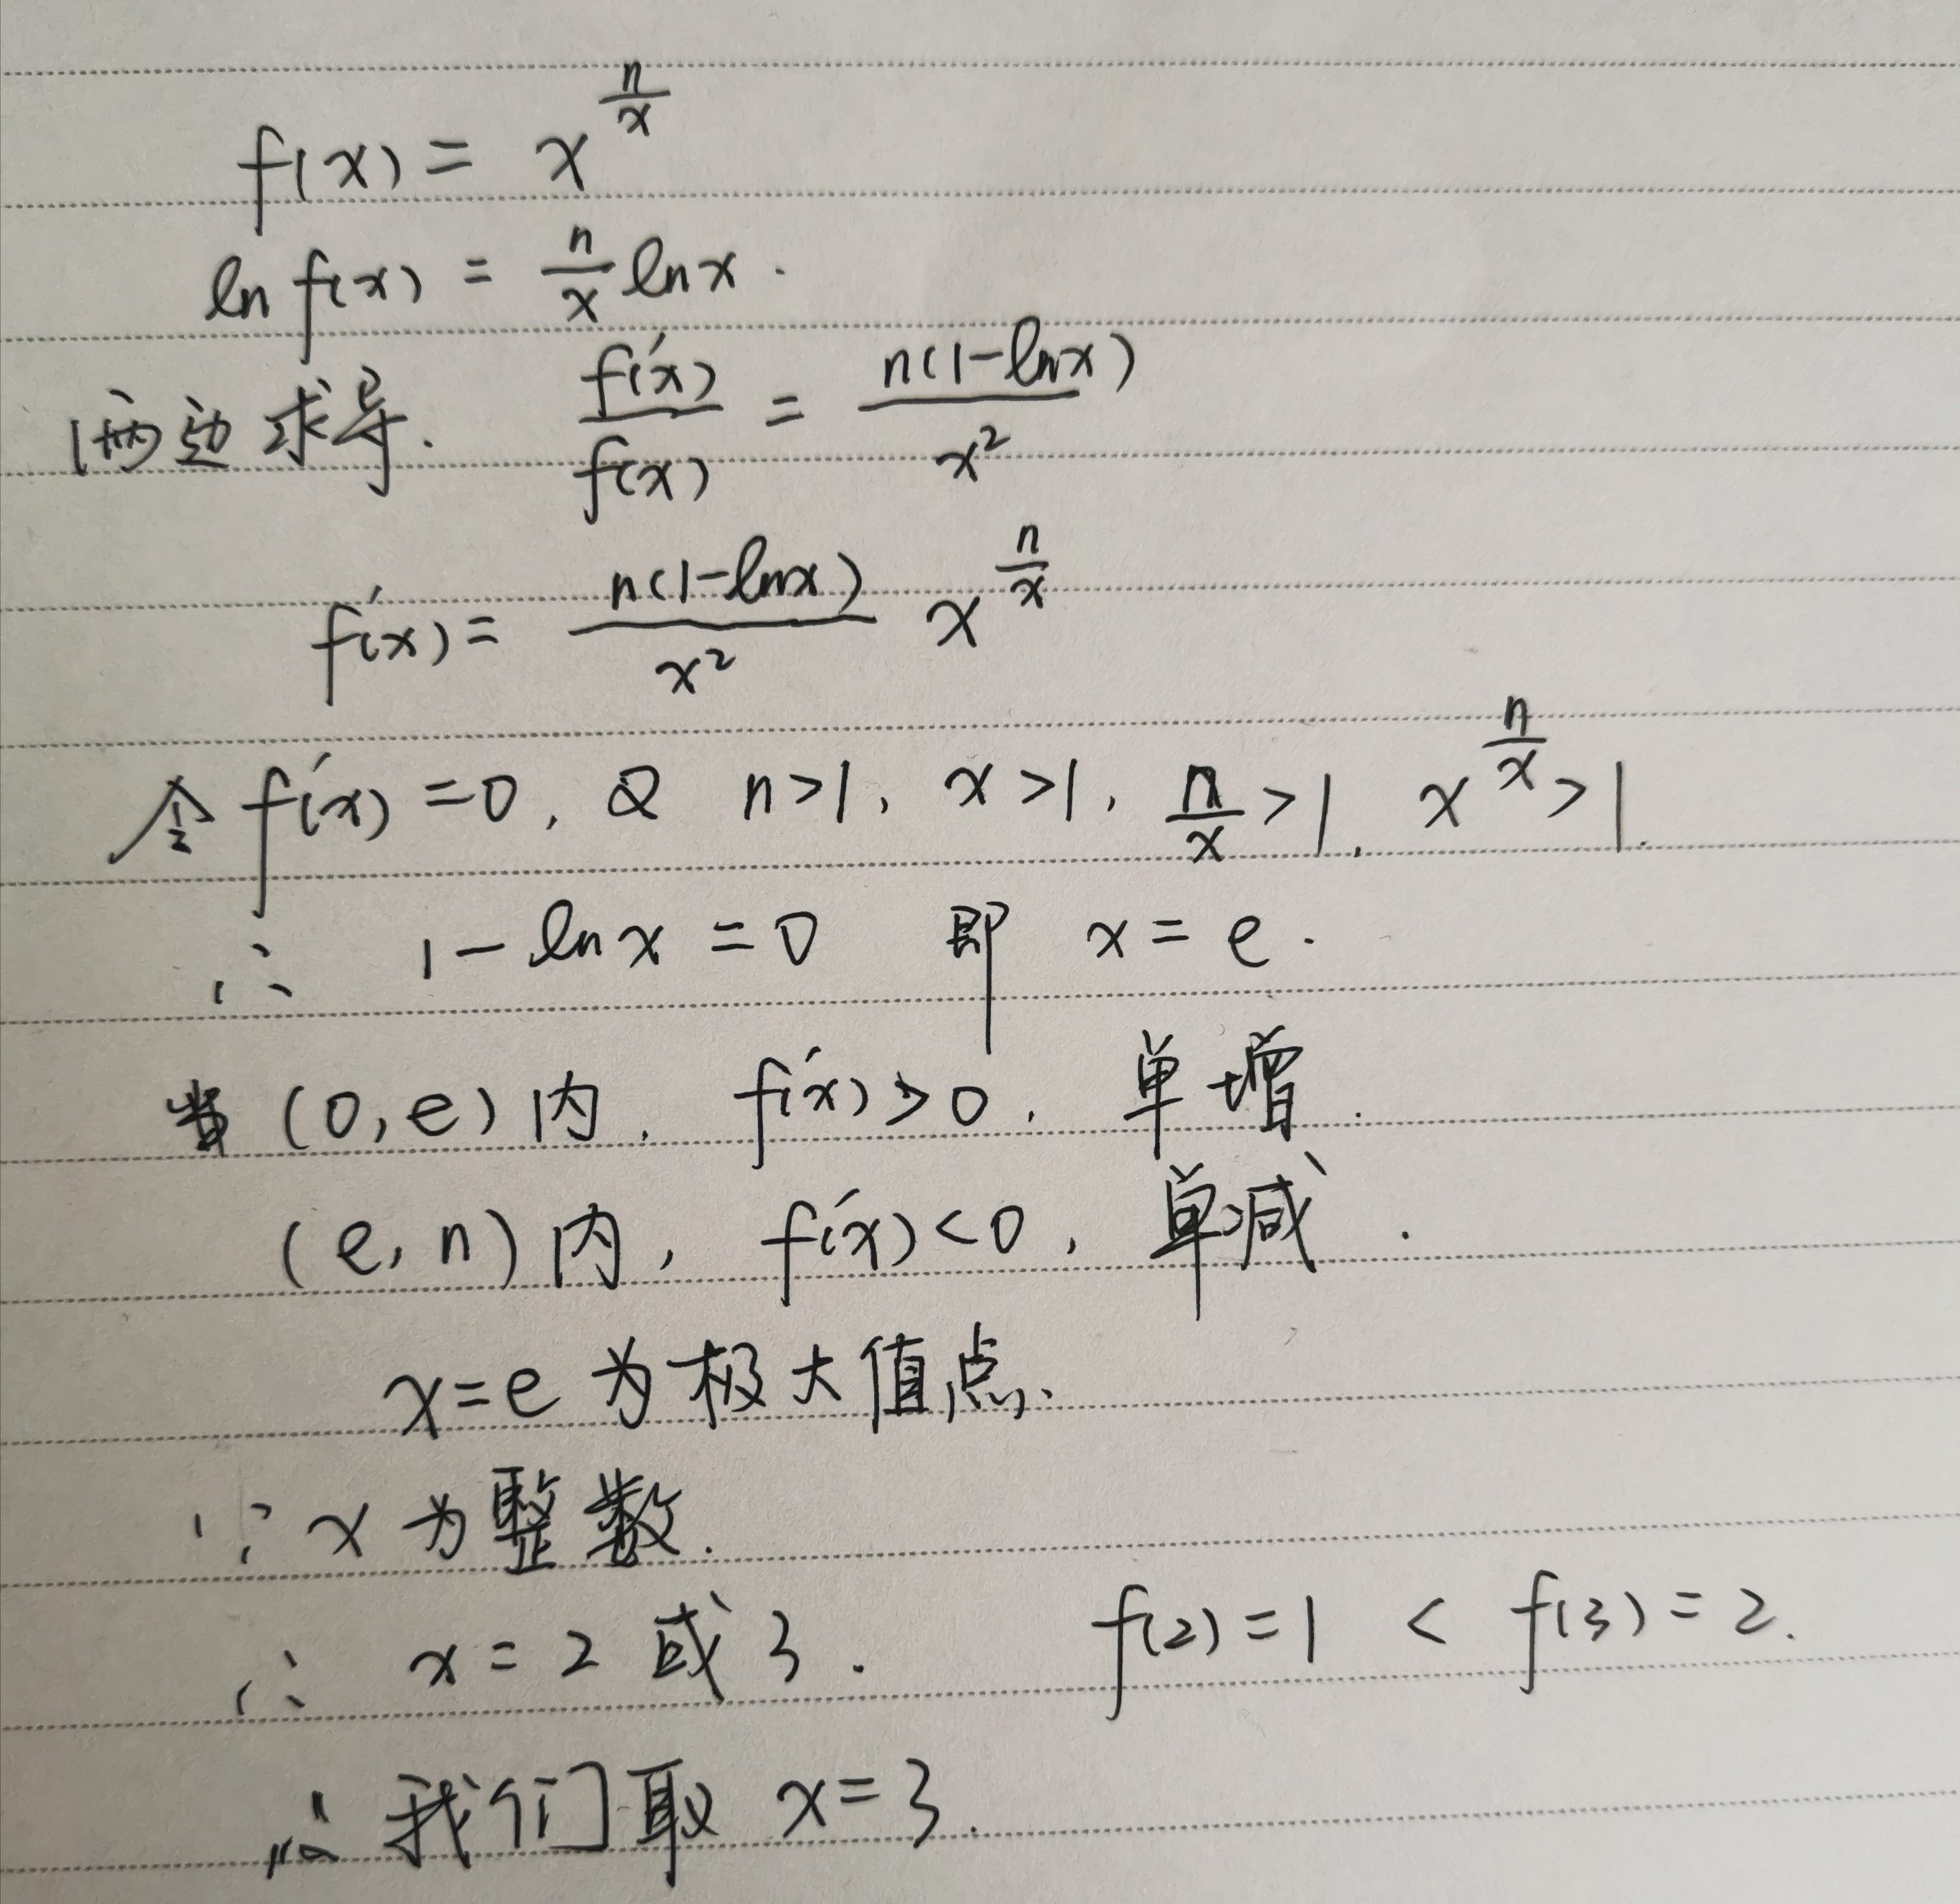 f(x) = x^{n/x}
ln f(x) = n/x ln x.
两边求导. f'(x)/f(x) = n(1-lnx)/x²
f'(x) = n(1-lnx)/x² x^{n/x}
令 f'(x) = 0, 又 n>1, x>1, n/x>1, x^{n/x}>1.
∴ 1-ln x = 0 即 x = e.
当 (0,e) 内, f'(x)>0, 单增.
(e,n) 内, f'(x)<0, 单减.
x=e 为极大值点.
∵ x 为整数.
∴ x = 2 或 3. f(2)=1 < f(3)=2.
∴ 我们取 x=3.